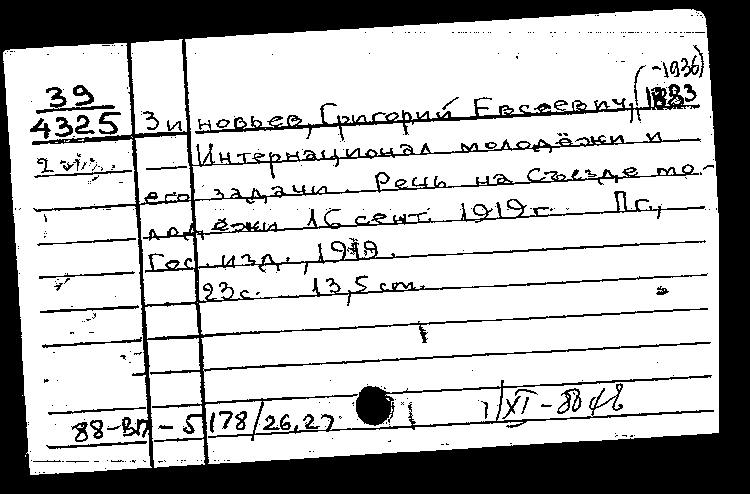 (-1936)
39
4325 Зиновьев, Григорий Евсеевич, 1883
2 экз. Интернационал молодёжи и
его задачи. Речь на съезде мо-
лодёжи 16 сент. 1919 г. Пг.,
Гос. изд., 1919.
23 с. 13,5 см.
88-ВП-5178/26,27